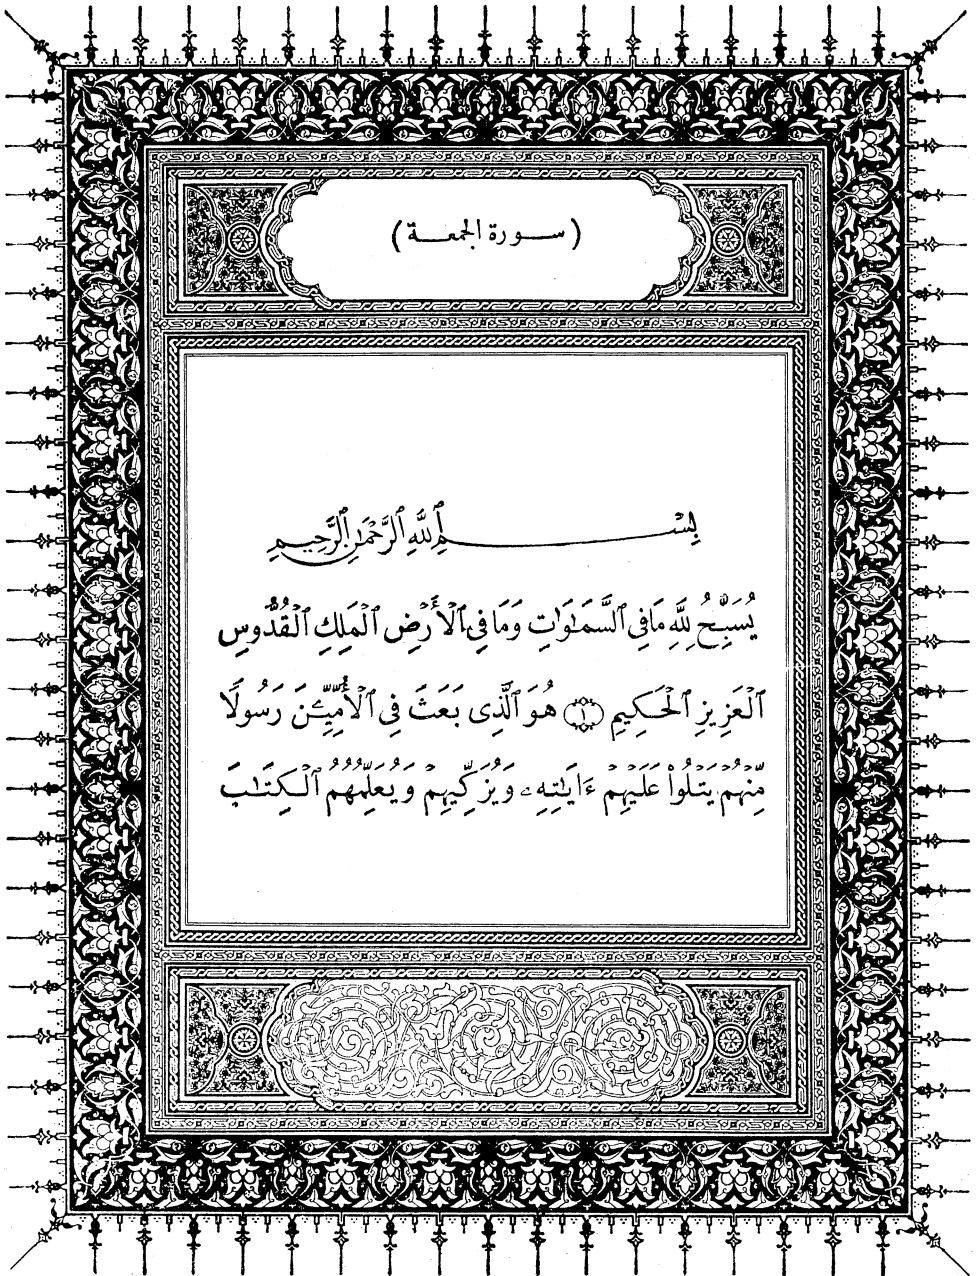 (سورة الجمعة)
بِسْمِ ٱللَّهِ ٱلرَّحْمَٰنِ ٱلرَّحِيمِ
يُسَبِّحُ لِلَّهِ مَا فِى ٱلسَّمَٰوَٰتِ وَمَا فِى ٱلْأَرْضِ ٱلْمَلِكِ ٱلْقُدُّوسِ
ٱلْعَزِيزِ ٱلْحَكِيمِ ١ هُوَ ٱلَّذِى بَعَثَ فِى ٱلْأُمِّيِّـۧنَ رَسُولًا
مِّنْهُمْ يَتْلُوا۟ عَلَيْهِمْ ءَايَٰتِهِۦ وَيُزَكِّيهِمْ وَيُعَلِّمُهُمُ ٱلْكِتَٰبَ